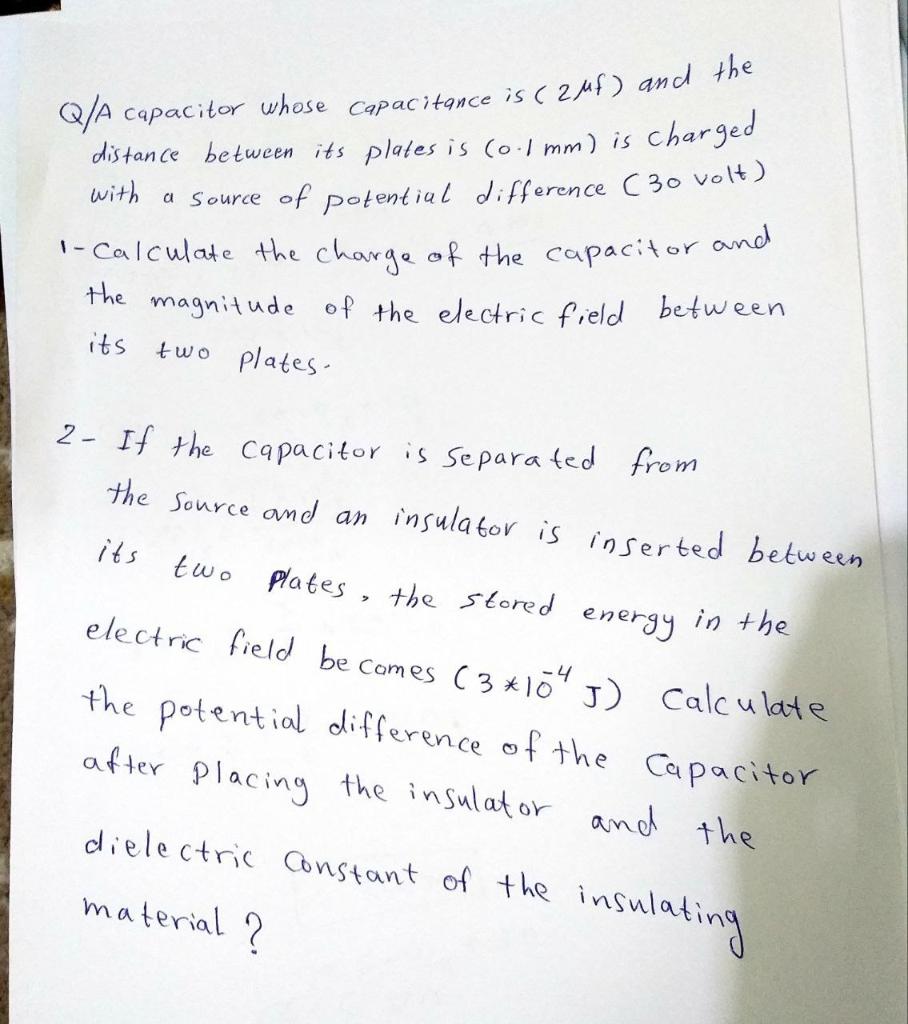 Q/A capacitor whose capacitance is (2 μf) and the
distance between its plates is (0.1 mm) is charged
with a source of potential difference (30 volt)
1- Calculate the charge of the capacitor and
the magnitude of the electric field between
its two plates.
2- If the capacitor is separated from
the source and an insulator is inserted between
its two plates, the stored energy in the
electric field becomes (3*10⁻⁴ J) Calculate
the potential difference of the capacitor
after placing the insulator and the
dielectric constant of the insulating
material ?